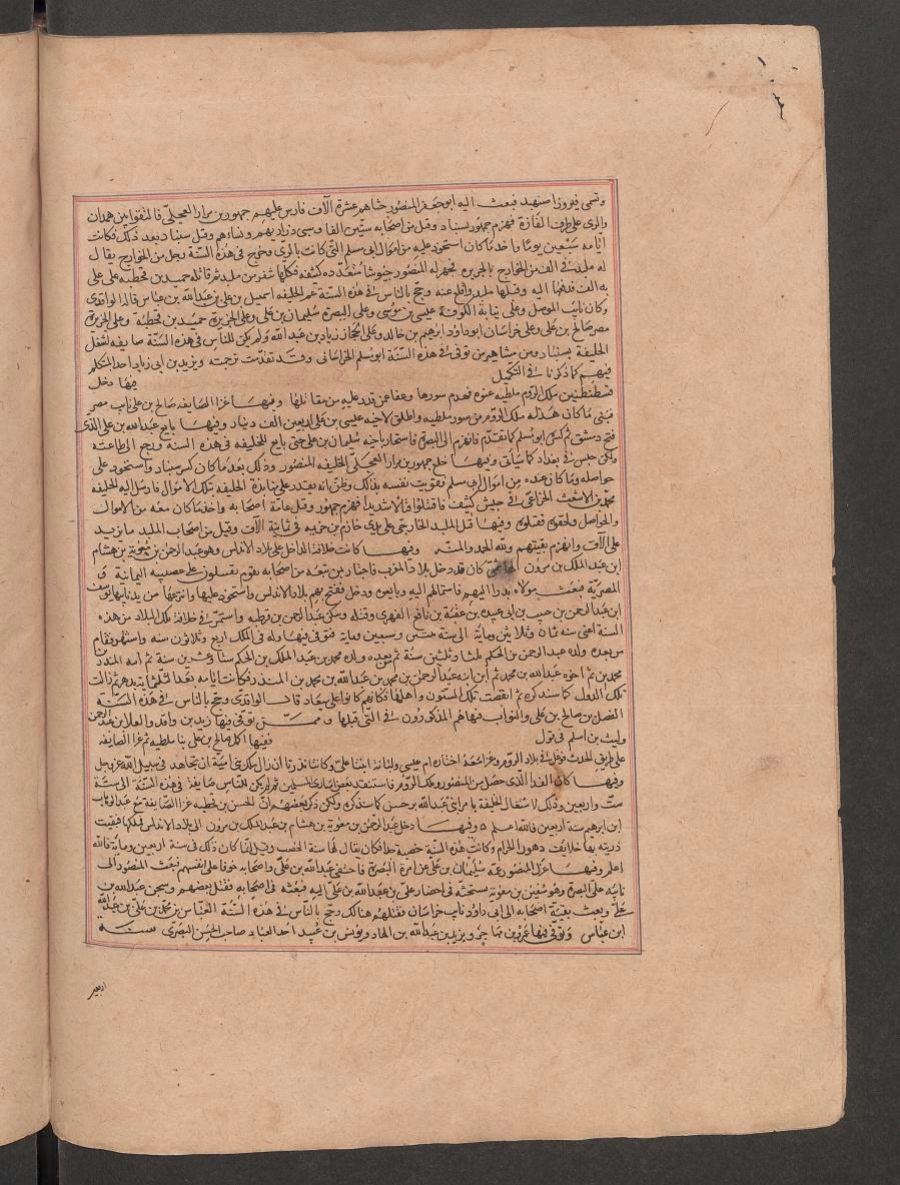 وتسمى فيروز اصبهبد فبعث اليه ابو جعفر المنصور جيشا هم عشرة الاف فارس عليهم جمهور بن مرار العجلي فالتقوا بين همدان
والرى على طرف المفازة فهزم جمهور لسنباد وقتل من اصحابه ستين الفا وسبى ذراريهم ونساءهم وقتل سنباد بعد ذلك فكانت
ايامه سبعين يوما واخذ ما كان استحوذ عليه من اموال ابى مسلم التى كانت بالرى وخرج فى هذه السنة رجل من الخوارج يقال
له ملبد فى الف من الخوارج بالجزيرة فجهز له المنصور جيوشا متعدده كثيفة فكلها تنفر من ملبد ثم قاتله حميد بن قحطبه على على
به الف فدفعها اليه وقبلها ملبد واقلع عنه وحج بالناس فى هذه السنة عم الخليفه اسمعيل بن على بن عبد الله بن عباس قاله الواقدى
وكان نايب الموصل وعلى نيابة الكوفة عيسى بن موسى وعلى البصرة سليمان بن على وعلى الجزيرة حميد بن قحطبة وعلى
مصر صالح بن على وعلى خراسان ابو داود ابرهيم بن خالد وعلى الحجاز زياد بن عبد الله ولم يكن للناس فى هذه السنة صايفه لشغل
الخليفة بسنباد ومن مشاهير من توفى فى هذه السنة ابو مسلم الخراسانى وقد تقدمت ترجمته ويزيد بن ابى زياد احد المتكلم
فيهم كما ذكرنا فى التكميل فيها دخل
قسطنطين ملك الروم ملطيه عنوة فهدم سورها وعفا عن من قدر عليه من مقاتلتها وفيها غزا الصايفه صالح بن على نايب مصر
فبنى ما كان هدمه ملك الروم من سور ملطيه واطلق لاخيه عيسى بن على اربعين الف دينار وفيها بايع عبد الله بن على الذى
فتح دمشق ثم كسره ابو مسلم كما تقدم فانهزم الى البصرة فاستجار باخيه سليمان بن على حتى بايع للخليفه فى هذه السنة ورجع الى طاعته
ولكن حبس فى بغداد كما سيأتى وفيها خلع جمهور بن مرار العجلى الخليفه المنصور وذلك بعد ما كان كسر سنباد واستحوذ على
حواصله وما كان عنده من اموال ابى مسلم فقويت نفسه بذلك وظن انه يقدر على منابذة الخليفه بتلك الاموال فارسل اليه الخليفه
محمد بن الاشعث الخزاعى فى جيش كثيف فاقتتلوا قتالا شديدا فهزم جمهور وقتل عامة اصحابه واخذ ما كان معه من الاموال
والحواصل ولحقوه فقتلوه وفيها قتل الملبد الخارجى على يدى خازم بن خزيمه فى ثمانية الاف وقتل من اصحاب الملبد ما يزيد
على الف وانهزم بقيتهم ولله الحمد والمنة وفيها كانت خلافة الداخل على بلاد الاندلس وهو عبد الرحمن بن معوية بن هشام
ابن عبد الملك بن مروان كان قد دخل بلاد المغرب فاجتاز بمن تبعه من اصحابه بقوم يقتتلون على عصبية اليمانية و
المضرية فبعث مولاه بدرا اليهم فاستمالهم اليه وبايعوه ودخل ففتح بهم بلاد الاندلس واستحوذ عليها وانتزعها من يد نايبها يوسف
ابن عبد الرحمن بن حبيب بن ابى عبيده بن عقبة بن نافع الفهرى وقتله وسكن عبد الرحمن بن قرطبه واستمر فى خلافة تلك البلاد من هذه
السنة اعنى سنه ثمان وثلاثين ومايه الى سنة وسبعين وماية فتوفى فيها وله فى الملك اربع وثلاثون سنه واشهر فقام
من بعده ولده عبد الرحمن بن الحكم ثلثا وثلثين سنة ثم بعده ولده محمد بن عبد الملك بن الحكم ستا وعشرين سنة ثم ابنه المنذر بن
محمد ثم اخوه عبد الله بن محمد ثم ابن ابنه عبد الرحمن بن محمد بن عبد الله بن محمد بن المنذر فكانت ايامه بعد الثلثماية بدهر ثم زالت
تلك الدول كما سنذكره ثم انقضت تلك السنون واهلها فكانهم كانوا على ميعاد قال الواقدى وحج بالناس فى هذه السنة
الفضل بن صالح بن على والنواب فيها هم المذكورون فى التى قبلها وممن توفى فيها زيد بن واقد والعلا بن عبد الرحمن
وليث بن اسلم فى قول ففيها اكمل صالح بن على بنا ملطيه ثم غزا الصايفه
على طريق الحدث فوغل فى بلاد الروم وغزا معه اختاه ام عيسى ولبابة ابنتا على وكانتا نذرتا ان زال ملك بنى امية ان يجاهدا فى سبيل الله عز وجل
وفيها كان الفدا الذى حصل من المنصور وملك الروم فاستنقذ بعض اسارى المسلمين ثم لم يكن للناس صايفة فى هذه السنة الى سنة
ست واربعين وذلك لاشتغال الخليفة بامر ابنى عبد الله بن حسن كما سنذكره ولكن ذكر بعضهم ان الحسن بن قحطبه غزا الصايفة مع عبد الوهاب
ابن ابرهيم سنة اربعين فالله اعلم وفيها دخل عبد الرحمن بن معوية بن هشام بن عبد الملك بن مروان الى بلاد الاندلس فملكها فبقيت
ذريته بها خلايف دهورا وكانت هذه السنة خصبة جدا فكان يقال لها سنة الخصب وقيل انما كان ذلك فى سنة اربعين وماية فالله
اعلم وفيها عزل المنصور عمه سليمان بن على عن امرة البصرة فاختفى عبد الله بن على واصحابه خوفا على انفسهم فبعث المنصور الى
نايبه على البصرة وهو سفين بن معوية يستحثه فى احضار عبد الله بن على اليه فبعثه فى اصحابه فقتل بعضهم وسجن عبد الله بن
على وبعث بقية اصحابه الى ابى داود نايب خراسان فقتلهم هنالك وحج بالناس فى هذه السنة العباس بن محمد بن على بن عبد الله
ابن عباس وتوفى فيها عمرو بن مهاجر ويزيد بن عبد الله بن الهاد ويونس بن عبيد احد العباد صاحب الحسن البصرى سنة
اربعين